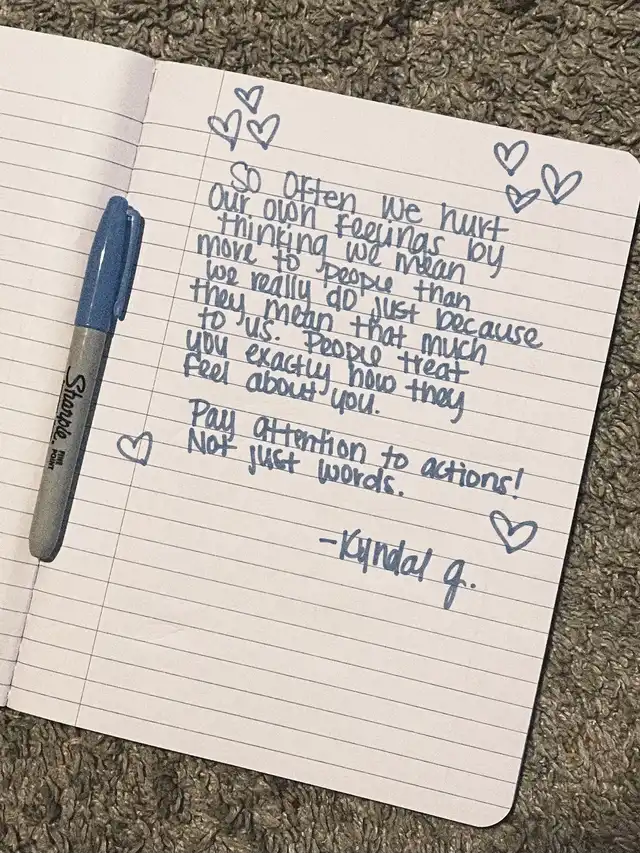 So often we hurt
our own feelings by
thinking we mean
more to people than
we really do just because
they mean that much
to us. People treat
you exactly how they
feel about you.
Pay attention to actions!
Not just words.
-Kyndal g.
Sharpie.
FINE POINT